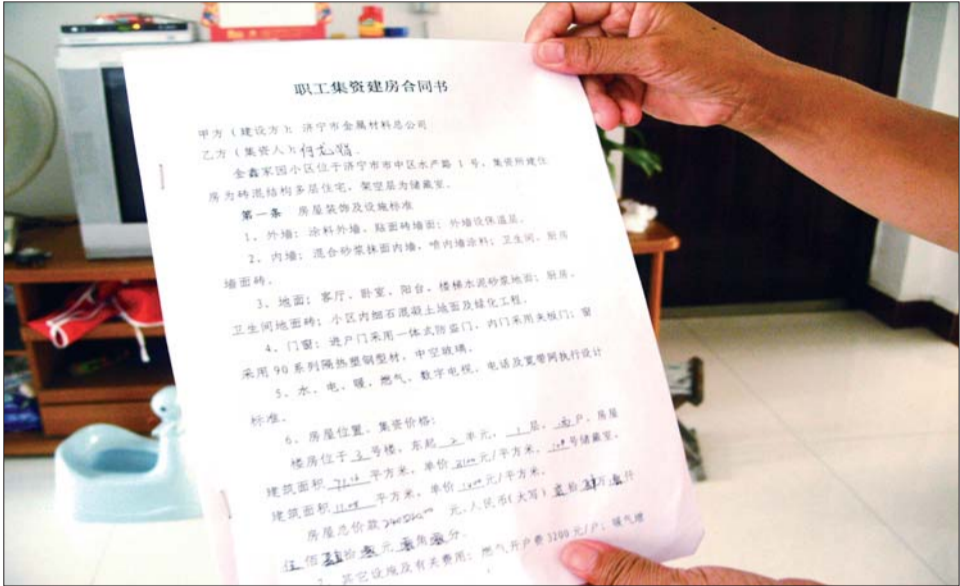 职工集资建房合同书
甲方（建设方）：济宁市金属材料总公司
乙方（集资人）：何
金鑫家园小区位于济宁市市中区水产路 1 号，集资所建住
房为砖混结构多层住宅，架空层为储藏室。
第一条 房屋装饰及设施标准
1、外墙：涂料外墙、贴面砖墙面；外墙设保温层。
2、内墙：混合砂浆抹面内墙，喷内墙涂料；卫生间、厨房
墙面砖。
3、地面：客厅、卧室、阳台、楼梯水泥砂浆地面；厨房、
卫生间地面砖；小区内细石混凝土地面及绿化工程。
4、门窗：进户门采用一体式防盗门，内门采用夹板门；窗
采用 90 系列隔热塑钢型材，中空玻璃。
5、水、电、暖、燃气、数字电视、电话及宽带网执行设计
标准。
6、房屋位置、集资价格：
楼房位于 3 号楼，东起 2 单元，1 层，西户，房屋
建筑面积 平方米，单价 元/平方米， 号储藏室，
建筑面积 平方米，单价 元/平方米。
房屋总价款 元，人民币（大写） 拾 万 仟
佰 拾 元 角 分。
7、其它设施及有关费用：燃气开户费 3200 元/户；暖气增